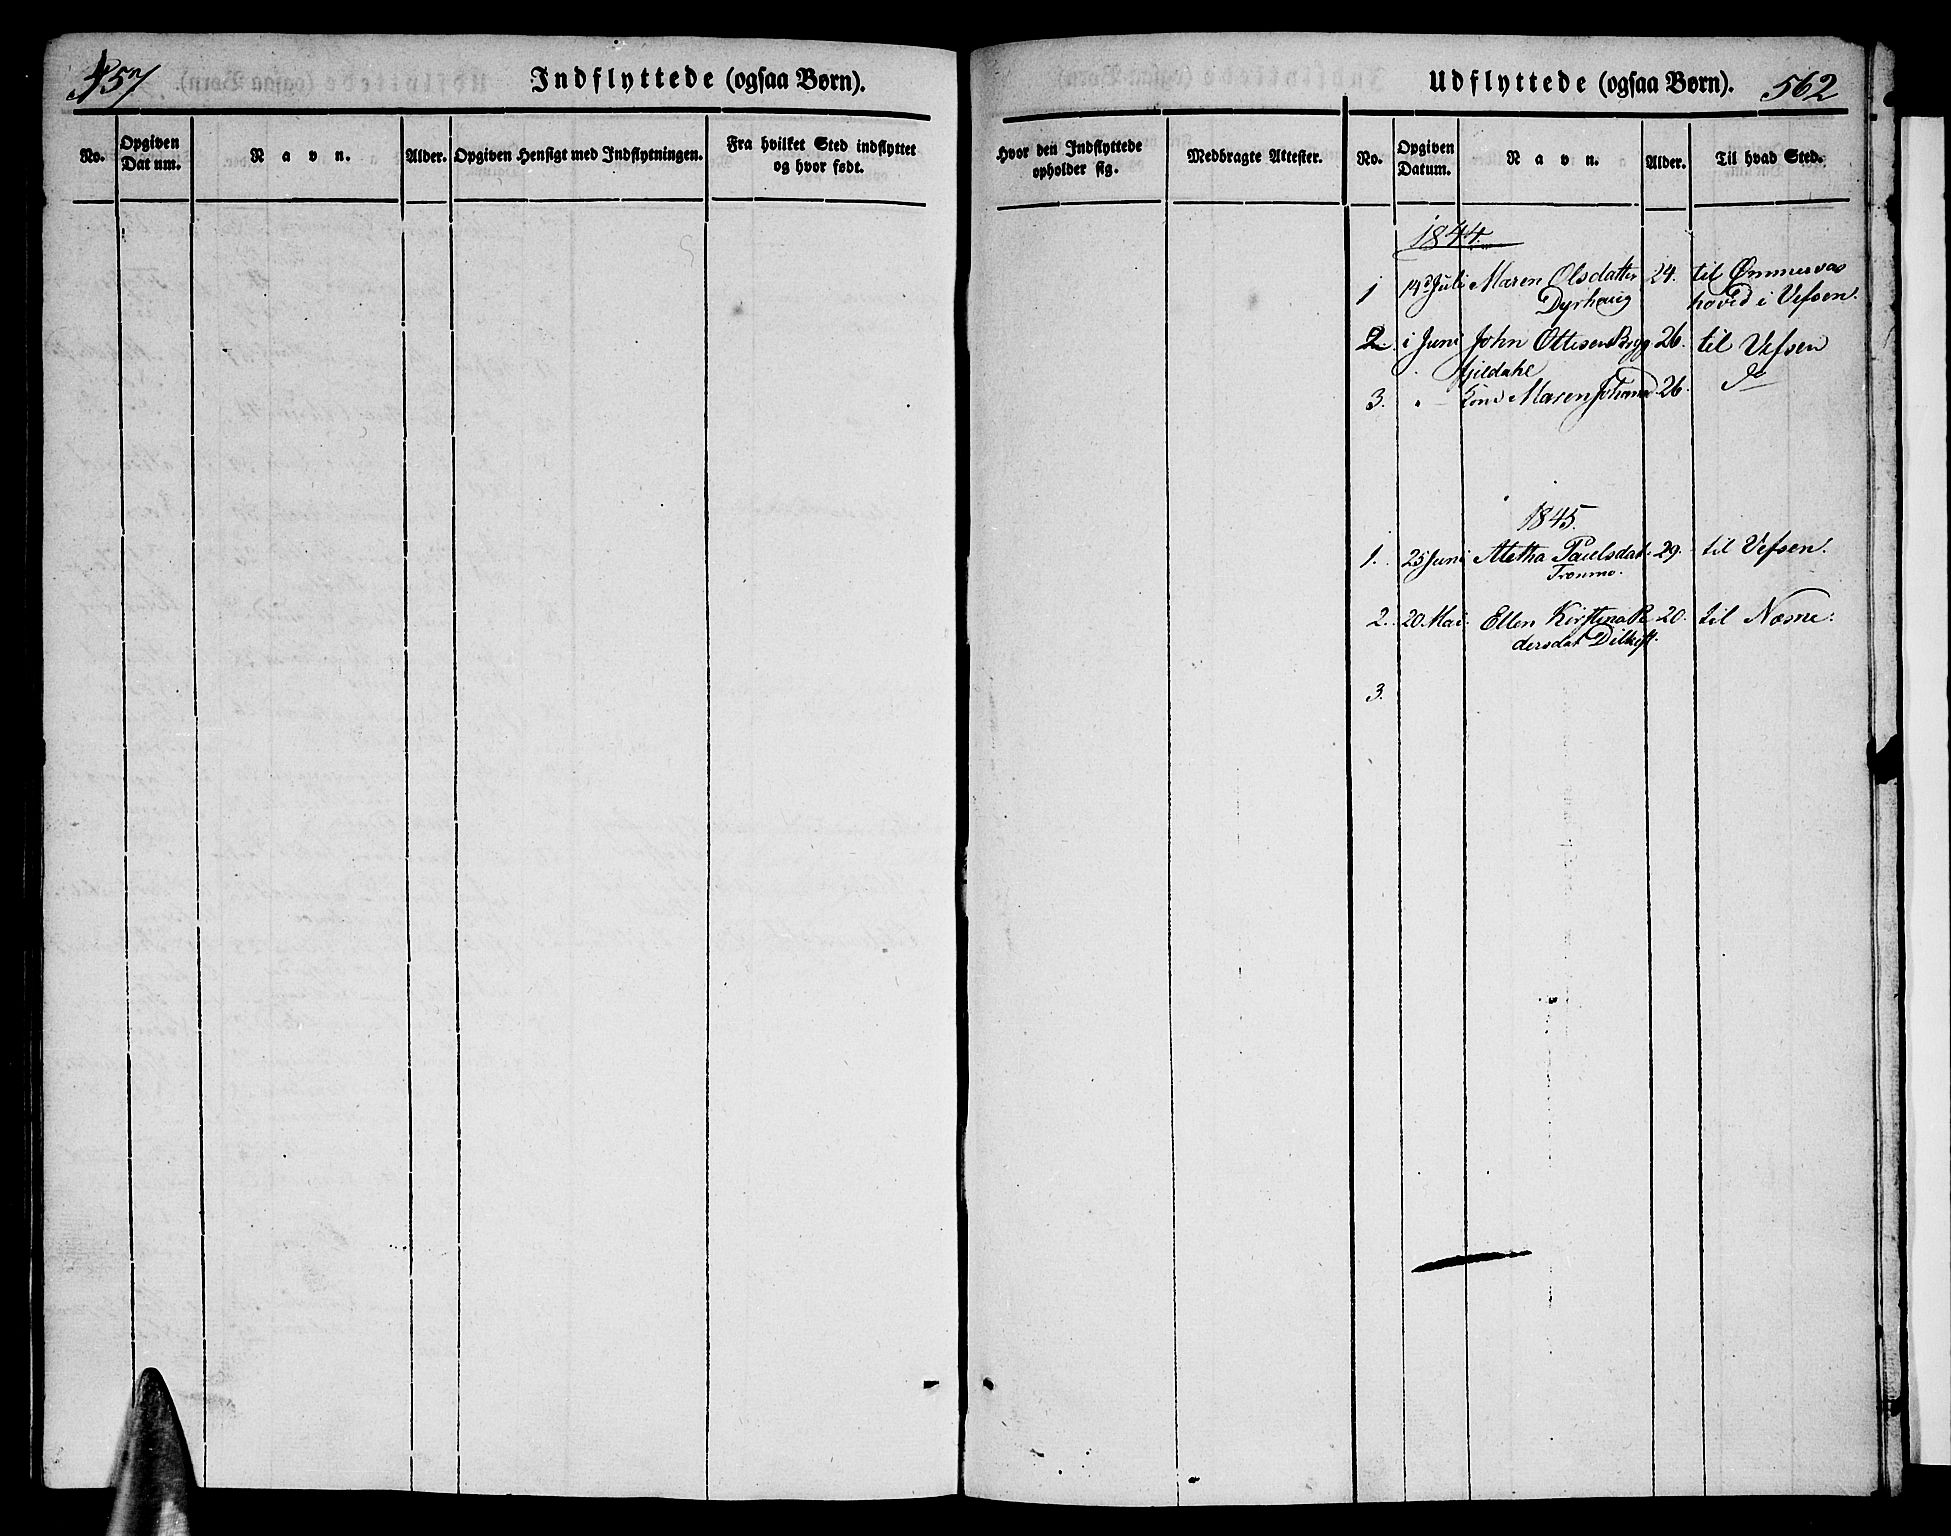 557
Indflyttede (ogsaa Børn).
No.
Opgiven Datum.
Navn.
Alder.
Opgiven Hensigt med Indflytningen.
Fra hvilket Sted indflyttet
og hvor født.
Udflyttede (ogsaa Børn).
562
Hvor den Indflyttede
opholder sig.
Medbragte Attester.
No.
Opgiven Datum.
Navn.
Alder.
Til hvad Sted.
1844.
1 14d Juli Maren Olsdatter 24. til Ømmervas
Dyrhoug hoved i Vefsen.
2. i Juni John Ottesen Brygg 26. til Vefsen
fjeldahl
3. " Kone Maren Johanna 26.
1845.
1. 25 Juni Aletha Paulsdat. 29. til Vefsen.
Tronmo.
2. 20. Mai. Ellen Kirstina 20. til Næsne.
dersdat Dilkift.
3.